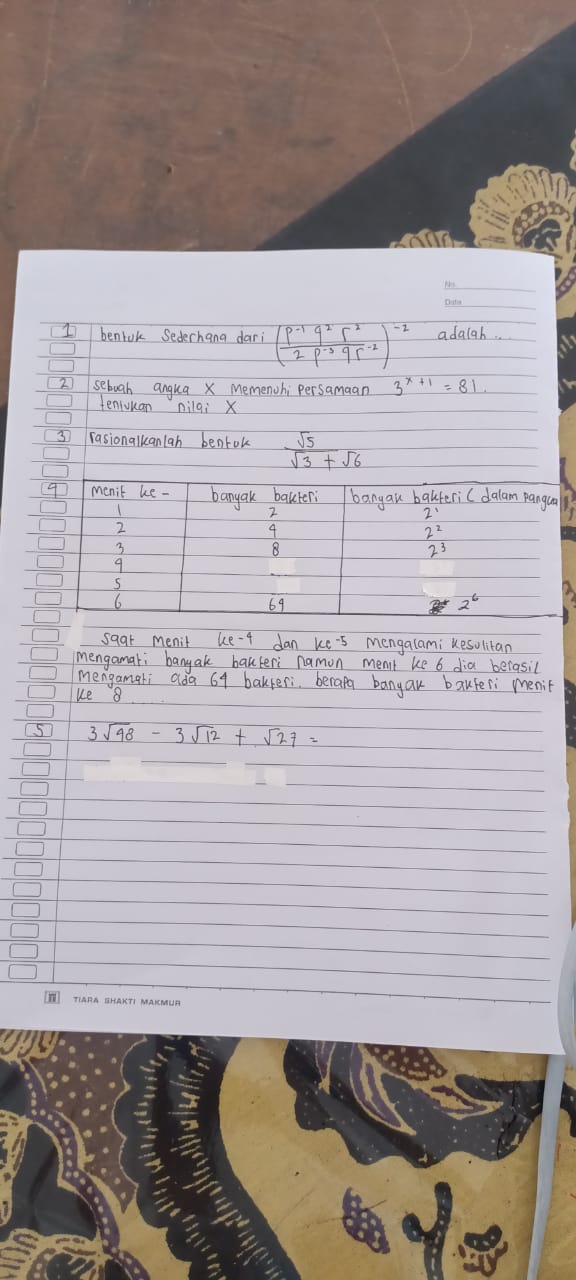 No.
Date
1 bentuk Sederhana dari (p⁻¹ q² r² / 2 p⁻³ q r⁻²)⁻² adalah...
2 sebuah angka X Memenuhi Persamaan 3ˣ⁺¹ = 81.
tentukan nilai X
3 rasionalkanlah bentuk √5 / √3 + √6
4 Menit ke - banyak bakteri banyak bakteri ( dalam pangkat
1 2 2¹
2 4 2²
3 8 2³
4
5
6 64 2⁶
saat Menit ke-4 dan ke-5 Mengalami kesulitan
Mengamati banyak bakteri namun menit ke 6 dia berasil
Mengamati ada 64 bakteri. berapa banyak bakteri Menit
ke 8
5 3√48 - 3√12 + √27 =
TIARA SHAKTI MAKMUR